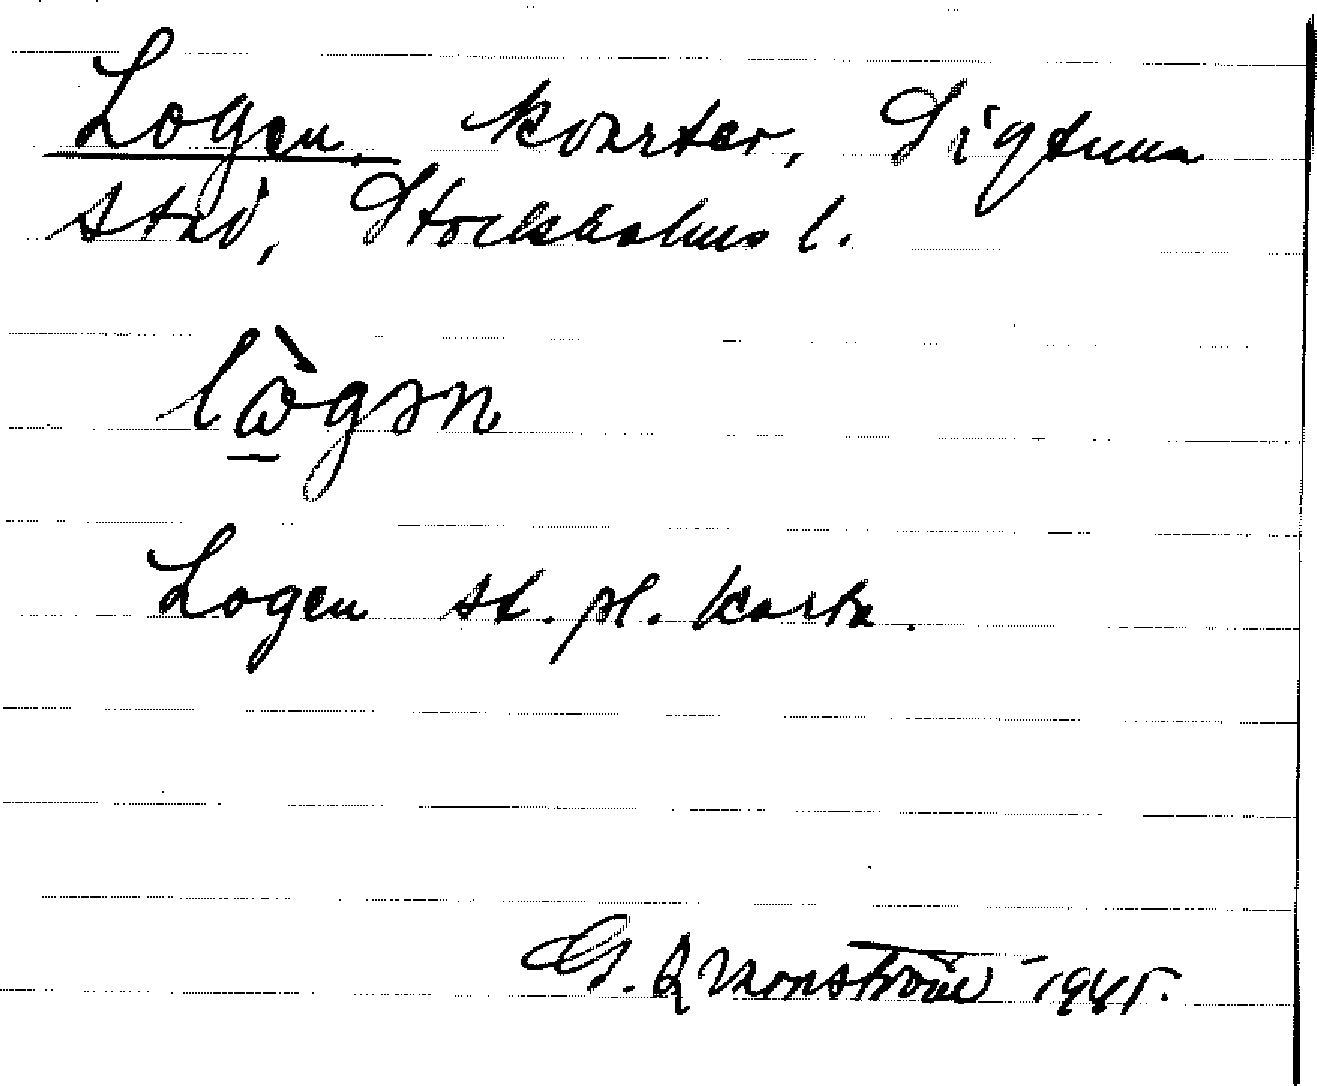 Logen, kvarter, Sigtuna
stad, Stockholms l.
lògən
Logen st. pl. karta.
G. Qvarnström 1945.